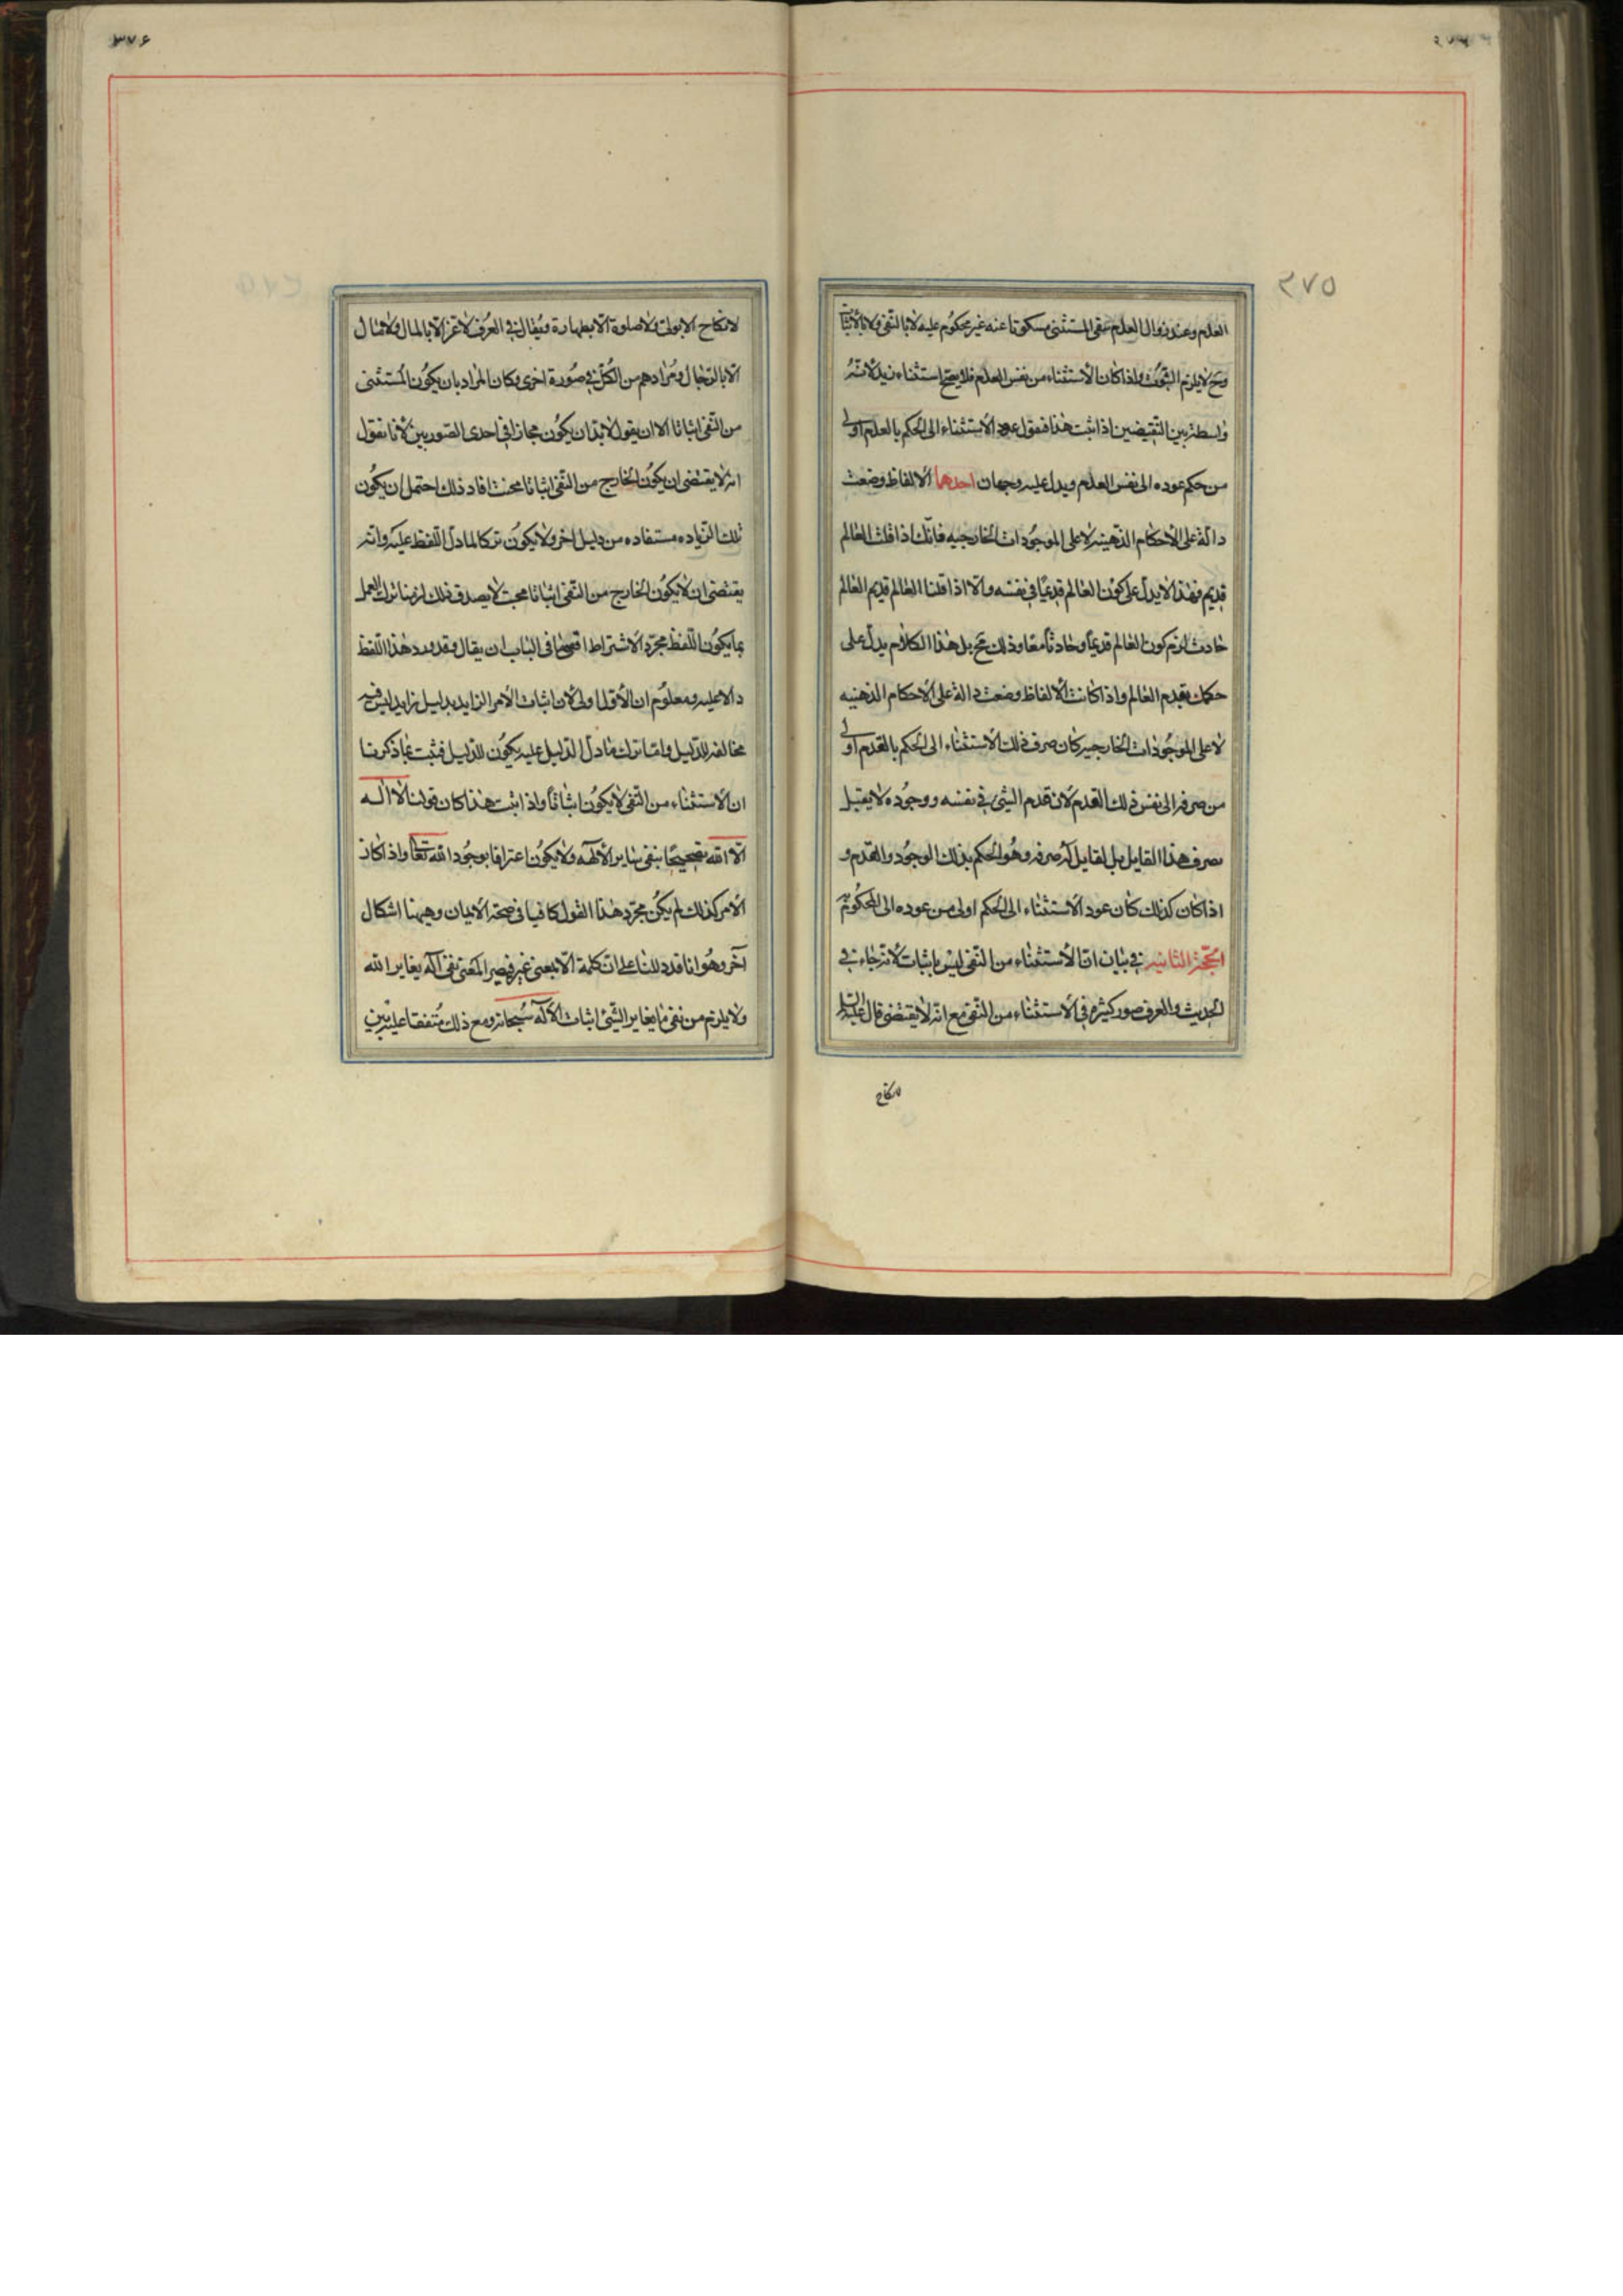 ۳۷۵
العدم وعند زوال العدم يبقى المستثنى مسكوتا عنه غير محكوم عليه لا بالنفى ولا بالاثبات
وح لا يلزم الثبوت واذا كان الاستثناء من نفس العدم فلا يصح استثناء زيد لانه
واسطة بين النقيضين اذا ثبت هذا فنقول عود الاستثناء الى الحكم بالعدم اولى
من حكم عوده الى نفس العدم ويدل عليه وجهان احدهما الالفاظ وضعت
دالة على الاحكام الذهنية لا على الموجودات الخارجيه فانك اذا قلت العالم
قديم فهذا لا يدل على كون العالم قديما فى نفسه والا اذا قلنا العالم قديم العالم
حادث لزم كون العالم قديما وحادثا معا وذلك مح بل هذا الكلام يدل على
حكمك بقدم العالم واذا كانت الالفاظ وضعت دالة على الاحكام الذهنيه
لا على الموجودات الخارجيه كان صرف ذلك الاستثناء الى الحكم بالعدم اولى
من صرفه الى نفس ذلك العدم لان قدم الشئ فى نفسه ووجوده لا يقبل
تصرف هذا القايل بل لقايل صرفه وهو الحكم بذلك الوجود والعدم و
اذا كان كذلك كان عود الاستثناء الى الحكم اولى من عوده الى المحكوم به
الحجة الثانيه فى بيان ان الاستثناء من النفى ليس باثبات لانه جاء فى
الحديث والعرف صور كثيرة فى الاستثناء من النفى مع انه لا يقتضى قال عليه السلام
لا نكاح
۳۷۶
لا نكاح الا بولى ولا صلوة الا بطهارة ويقال فى العرف لا عز الا بالمال ولا مال
الا بالرجال ومرادهم من الكل فى صورة اخرى وكان المراد بان يكون المستثنى
من النفى اثباتا الا ان يقول لابد ان يكون مجازا فى احدى الصورتين لانا نقول
انه لا يقتضى ان يكون الخارج من النفى اثباتا فحيث افاد ذلك احتمل ان يكون
تلك الزياده مستفاده من دليل اخر ولا يكون تركا لما دل اللفظ عليه وانه
يقتضى ان لا يكون الخارج من النفى اثباتا فحيث لا يصدق ذلك لزمنا ترك العمل
بما يكون اللفظ مجرد الاشتراط اقصى ما فى الباب ان يقال وقد ورد هذا اللفظ
دالا عليه ومعلوم ان الاول اولى لان اثبات الامر الزايد بدليل زايد ليس فيه
مخالفه للدليل واما ترك ما دل الدليل عليه يكون للدليل فثبت بما ذكرنا
ان الاستثناء من النفى لا يكون اثباتا واذا ثبت هذا كان قولنا لا اله
الا الله تصحيحا بنفى ساير الالهه ولا يكون اعترافا بوجود الله تعالى واذا كان
الامر كذلك لم يكن مجرد هذا القول كافيا فى صحة الايمان وهيهنا اشكال
آخر وهو انا قد دللنا على ان كلمة الا بمعنى غير فيصير المعنى نفى اله يغاير الله
ولا يلزم من نفى ما يغاير الشئ اثبات الاله سبحانه ومع ذلك متفقا عليه بين